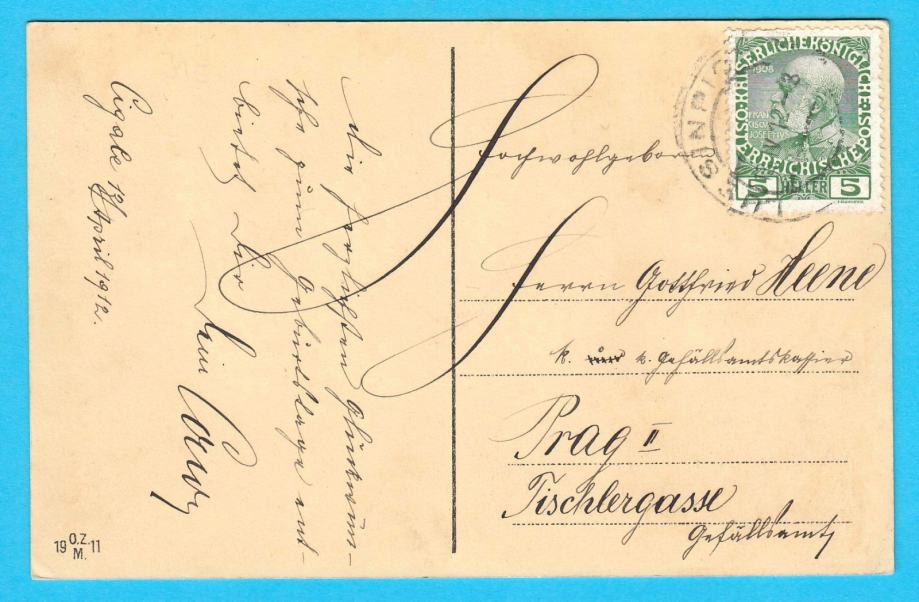 Cigale 12/April 1912.
Die herzlichsten Glückwün-
sche zum Geburtstage ent-
bietet Dir
Dein
Hochwohlgebor
Herrn Gottfried Heene
k. und k. Gefällsamtskassier
Prag II
Tischlergasse
Gefällsamt
KAISERLICHE KÖNIGLICHE
ÖSTERREICHISCHE POST
1908
FRAN
CISCVS
JOSEPHVS
I
5 HELLER 5
LUSSINPICC
12
19 O.Z.M. 11